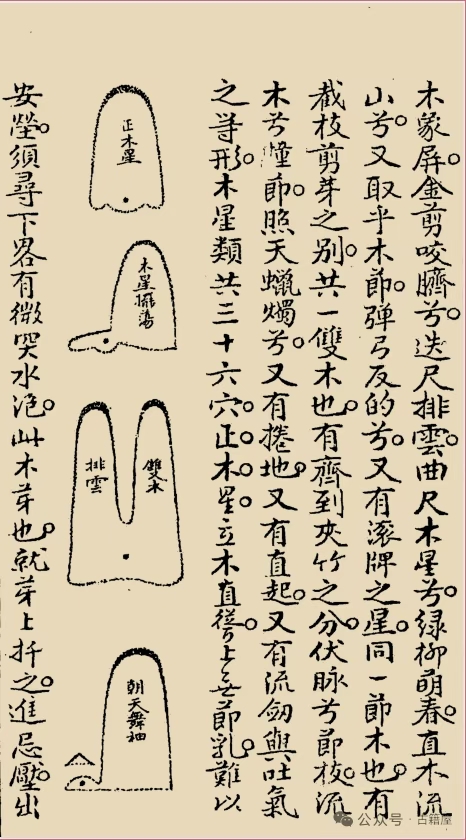 木象屏。金剪咬臍兮。迭尺排雲。曲尺木星兮。绿柳萌春。直木流
山兮。又取乎木節。彈弓反的兮。又有滚牌之星。同一節木也。有
截枝剪芽之别。共一雙木也。有齊到夾竹之分。伏脉兮節枝。流
木兮幢節。照天蠟燭兮。又有捲地。又有直起。又有流劒與吐氣
之等形。木星類共三十六穴。正。木。星。立木直聳。上无節乳。難以
正木星
木星擺蕩
雙木
排雲
朝天舞袖
安塋。須尋下畧有微突水泡。此木芽也。就芽上扦之。進忌壓。出
公众号·古籍屋